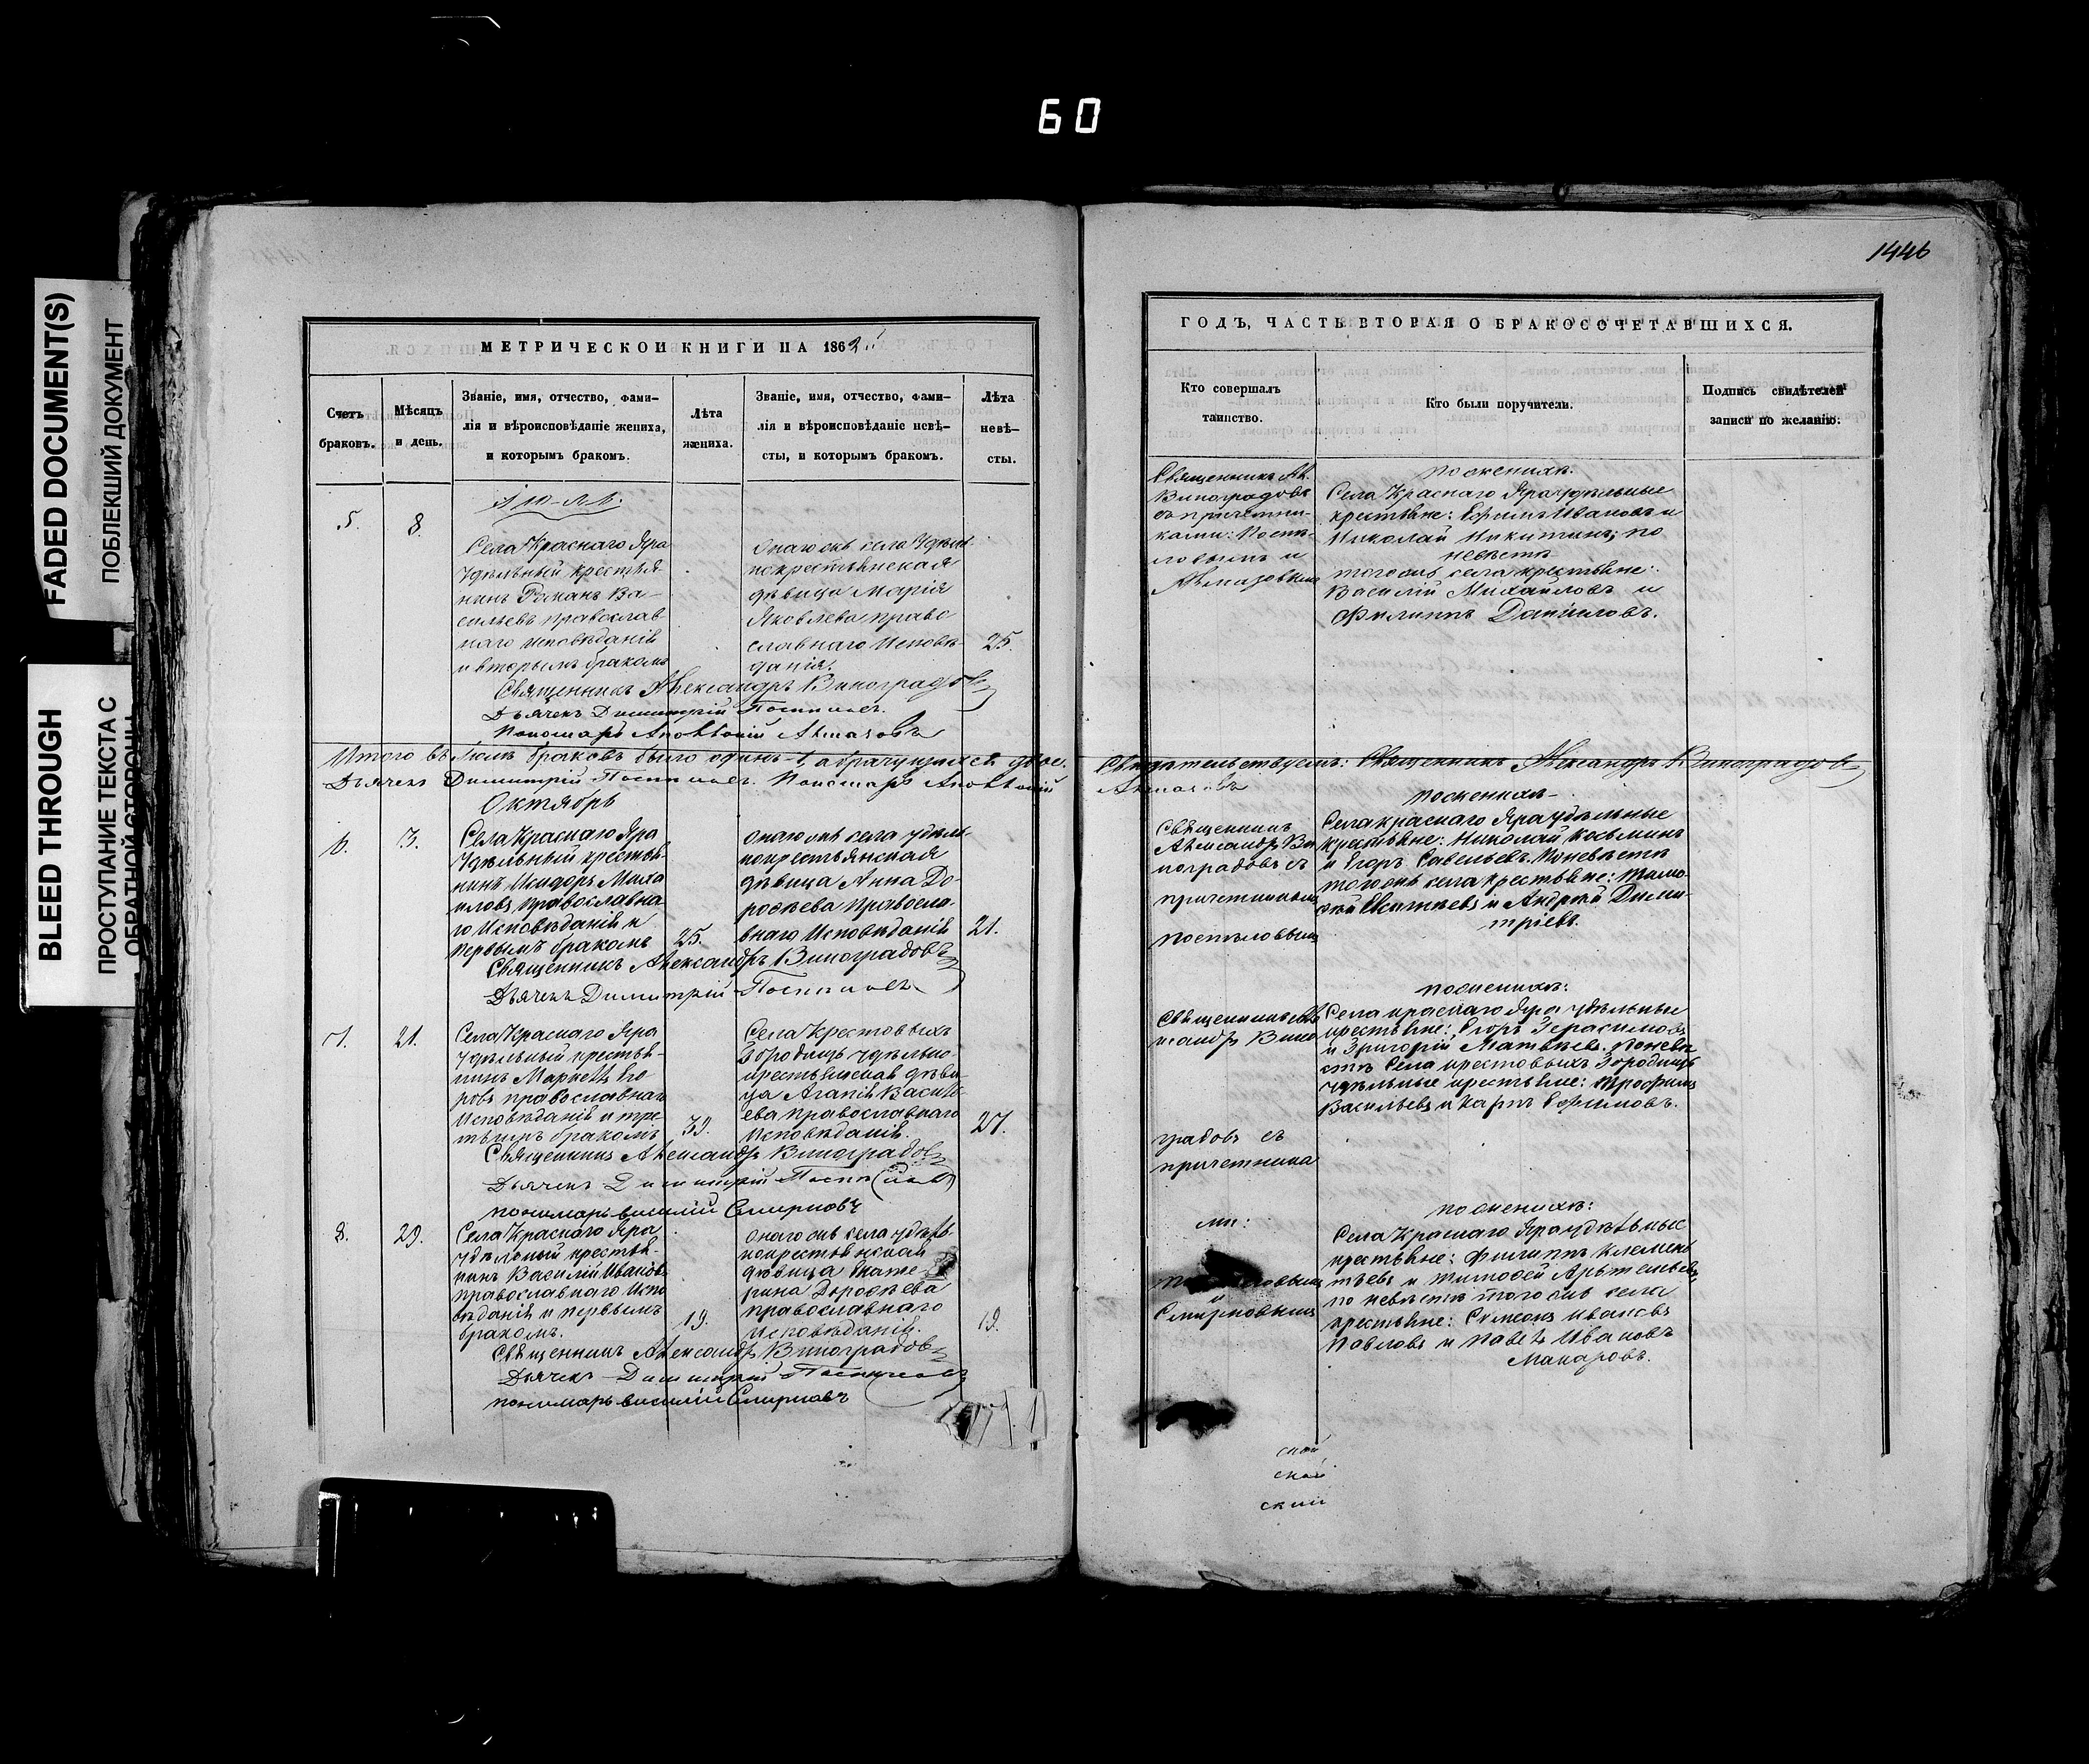 60
FADED DOCUMENT(S)
ПОБЛЕКШИЙ ДОКУМЕНТ
BLEED THROUGH
ПРОСТУПАНИЕ ТЕКСТА С
ОБРАТНОЙ СТОРОНЫ
МЕТРИЧЕСКОИ КНИГИ НА 1862й
Счетъ
браковъ.
Мѣсяцъ
и день.
Званіе, имя, отчество, фами-
лія и вѣроисповѣданіе жениха,
и которымъ бракомъ.
Лѣта
жениха.
Званіе, имя, отчество, фами-
лія и вѣроисповѣданіе невѣ-
сты, и которымъ бракомъ.
Лѣта
невѣ-
сты.
Іюль.
5.
8.
Села Краснаго Яра
удѣльный крестья-
нинъ Романъ Ва-
сильевъ православ
наго исповѣданія
и вторымъ бракомъ
онаго же села удѣль
нокрестьянская
дѣвица Марія
Яковлева право
славнаго Исповѣ-
данія.
25.
Священникъ Александръ Виноградовъ
Дьячекъ Димитрій
Пономарь Алмазовъ
Итого въ Іюлѣ браковъ было одинъ 1, а брачущихся двое.
Дьячекъ Димитрій Пономарь
Октябрь
6.
3.
Села Краснаго Яра
Удѣльный крестья-
нинъ Исидоръ Миха
иловъ православна
го Исповѣданія и
первымъ бракомъ
25.
онаго же села удѣль
нокрестьянская
дѣвица Анна До-
роѳеева Правосла-
внаго Исповѣданія
21.
Священникъ Александръ Виноградовъ
Дьячекъ Димитрій
7.
21.
Села Краснаго Яра
удѣльный крестья-
нинъ Маркеллъ Его
ровъ православнаго
Исповѣданія и тре
тьимъ бракомъ
39.
Села Крестовыхъ
Городищъ удѣльно-
крестьянская дѣви-
ца Агапія Василь-
ева православнаго
Исповѣданія.
27.
Священникъ Александръ Виноградовъ
Дьячекъ Димитрій
пономарь Василій Смирновъ
8.
29.
Села Краснаго Яра
удѣльный крестья-
нинъ Василій Ивановъ
православнаго Испо
вѣданія и первымъ
бракомъ.
19.
онаго же села удѣль-
нокрестьянская
дѣвица Екате-
рина Дороѳеева
православнаго
Исповѣданія.
19.
Священникъ Александръ Виноградовъ
Дьячекъ Димитрій
пономарь Василій Смирновъ
1446
ГОДЪ, ЧАСТЬ ВТОРАЯ О БРАКОСОЧЕТАВШИХСЯ.
Кто совершалъ
таинство.
Кто были поручители.
Подпись свидѣтелей
записи по желанію.
Священникъ Ал.
Виноградовъ
съ причетни-
ками:
и
Алмазовымъ
по женихѣ.
Села Краснаго Яра удѣльные
крестьяне: Ефимъ Ивановъ и
Николай Никитинъ; по
невѣстѣ
того же села крестьяне:
Василій Михаиловъ и
Филиппъ Даниловъ.
Свидѣтельствуемъ: Священникъ Александръ Виноградовъ
Алмазовъ
Священникъ
Александръ Ви
ноградовъ съ
причетникомъ
по женихѣ
Села краснаго Яра удѣльные
крестьяне: Николай Козьминъ
и Егоръ Савельевъ. По невѣстѣ
того же села крестьяне:
и Андрей Дими-
тріевъ.
Священникъ Але
ксандръ Вино
градовъ съ
причетника
ми:
и
Смирновымъ
по женихѣ:
Села краснаго Яра удѣльные
крестьяне: Егоръ Герасимовъ
и Григорій Матвѣевъ. По невѣ
стѣ Села крестовыхъ Городищъ
удѣльные крестьяне: Трофимъ
Васильевъ и Карпъ Ефимовъ.
по женихѣ:
Села Краснаго Яра удѣльные
крестьяне: Филиппъ Клемень
тьевъ и Тимоѳей Артемьевъ,
по невѣстѣ того же села
крестьяне: Симеонъ Ивановъ
Павловъ и Павелъ Ивановъ
Макаровъ.
ской
ской
ский